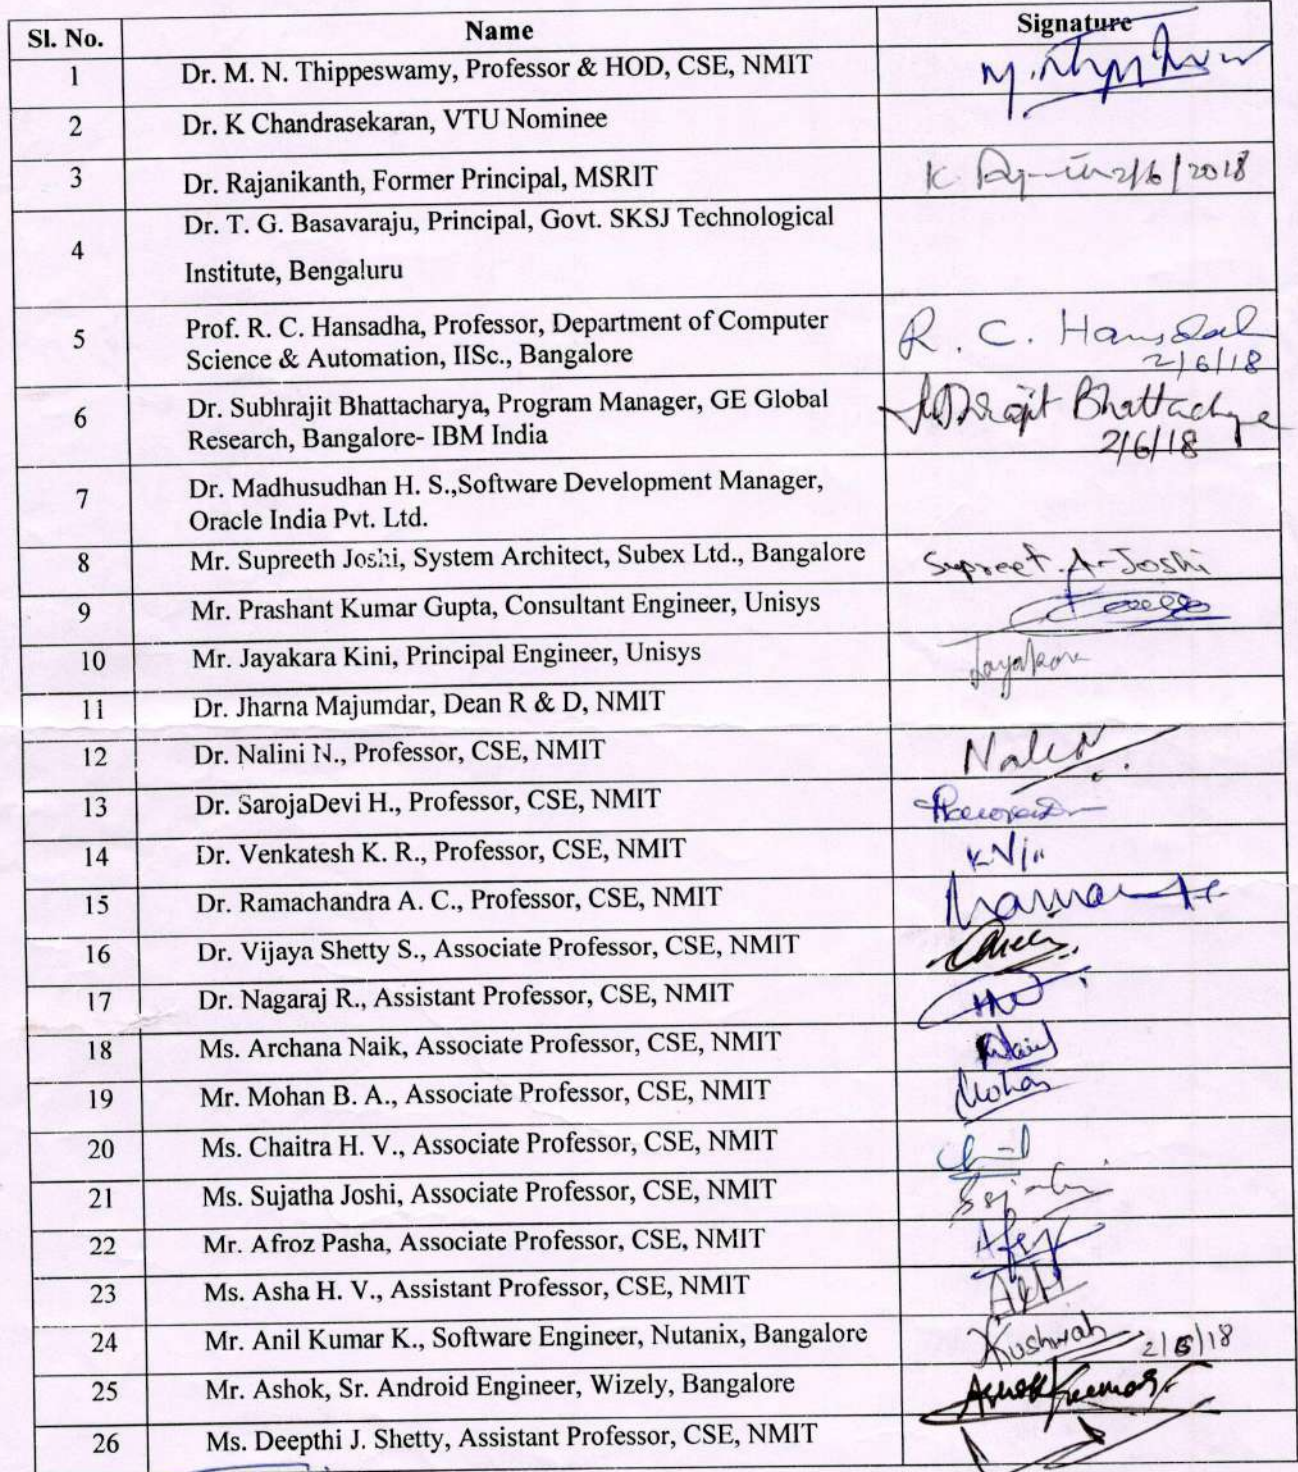 Sl. No. Name Signature
1 Dr. M. N. Thippeswamy, Professor & HOD, CSE, NMIT
2 Dr. K Chandrasekaran, VTU Nominee
3 Dr. Rajanikanth, Former Principal, MSRIT K 2/6/2018
4 Dr. T. G. Basavaraju, Principal, Govt. SKSJ Technological
Institute, Bengaluru
5 Prof. R. C. Hansadha, Professor, Department of Computer R. C. Hansdah
Science & Automation, IISc., Bangalore 2/6/18
6 Dr. Subhrajit Bhattacharya, Program Manager, GE Global
Research, Bangalore- IBM India 2/6/18
7 Dr. Madhusudhan H. S.,Software Development Manager,
Oracle India Pvt. Ltd.
8 Mr. Supreeth Joshi, System Architect, Subex Ltd., Bangalore Supreet. A. Joshi
9 Mr. Prashant Kumar Gupta, Consultant Engineer, Unisys
10 Mr. Jayakara Kini, Principal Engineer, Unisys Jayakara
11 Dr. Jharna Majumdar, Dean R & D, NMIT
12 Dr. Nalini N., Professor, CSE, NMIT
13 Dr. SarojaDevi H., Professor, CSE, NMIT
14 Dr. Venkatesh K. R., Professor, CSE, NMIT
15 Dr. Ramachandra A. C., Professor, CSE, NMIT
16 Dr. Vijaya Shetty S., Associate Professor, CSE, NMIT
17 Dr. Nagaraj R., Assistant Professor, CSE, NMIT
18 Ms. Archana Naik, Associate Professor, CSE, NMIT
19 Mr. Mohan B. A., Associate Professor, CSE, NMIT Mohan
20 Ms. Chaitra H. V., Associate Professor, CSE, NMIT
21 Ms. Sujatha Joshi, Associate Professor, CSE, NMIT
22 Mr. Afroz Pasha, Associate Professor, CSE, NMIT
23 Ms. Asha H. V., Assistant Professor, CSE, NMIT
24 Mr. Anil Kumar K., Software Engineer, Nutanix, Bangalore Kushwah 2/6/18
25 Mr. Ashok, Sr. Android Engineer, Wizely, Bangalore
26 Ms. Deepthi J. Shetty, Assistant Professor, CSE, NMIT